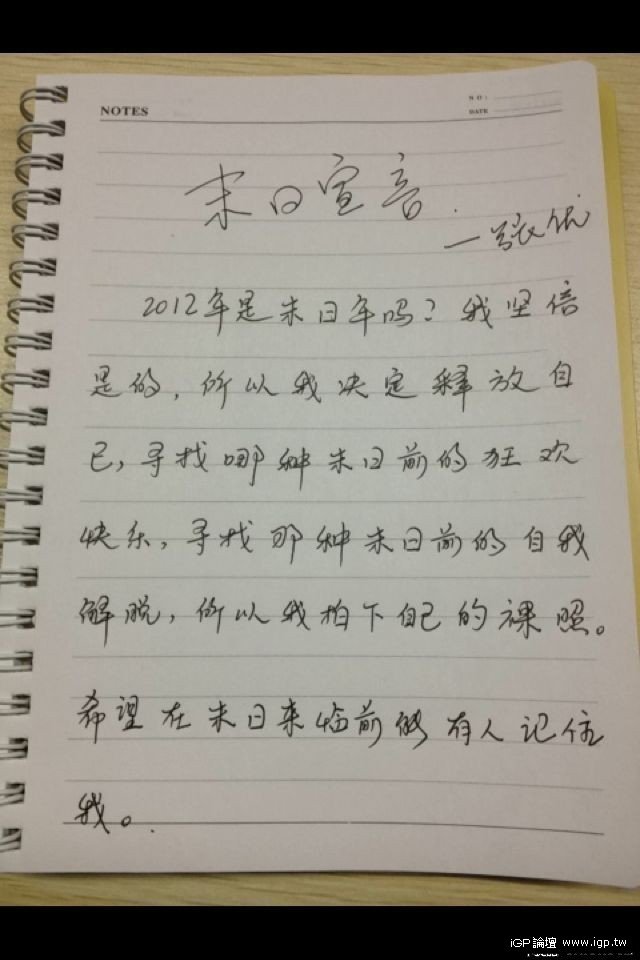 NOTES
NO:
DATE
末日宣言
一张优
2012年是末日年吗？我坚信
是的，所以我决定释放自
己，寻找哪种末日前的狂欢
快乐，寻找那种末日前的自我
解脱，所以我拍下自己的裸照。
希望在末日来临前能有人记住
我。
iGP論壇 www.igp.tw